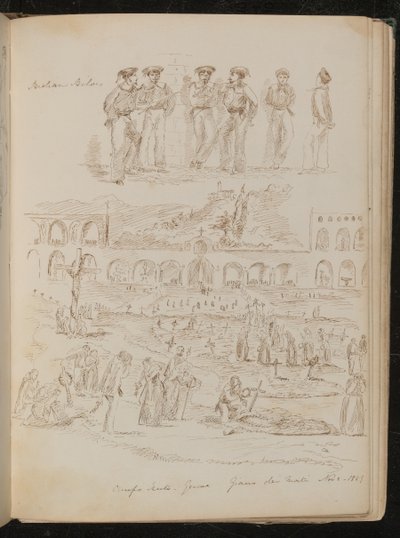 Italian
Campo Santo - Genoa Giorno dei Morti Nov 2 -